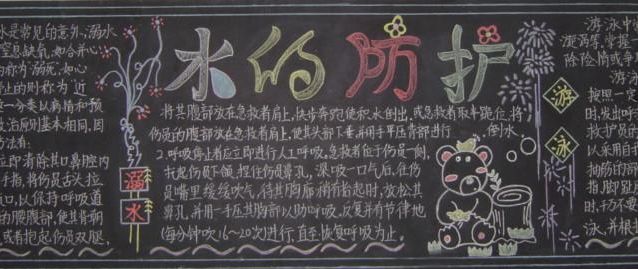 水是常见的意外、溺水
窒息缺氧，如合并心
称为溺死，如心
止的则称为近
一分类以病情和预
救治原则基本相同，因
方法有：
即清除其口鼻腔内
手指，将伤员舌头拉
口，以保持呼吸道
的腰腹部，使其背朝
或者抱起伤员双腿，
溺
水
水的防护
将其腹部放在急救者肩上，快步奔跑使积水倒出，或急救者取半跪位，将
伤员的腹部放在急救者肩上，使其头部下垂，并用手平压背部进行
倒水。
2.呼吸停止者应立即进行人工呼吸。急救者位于伤员一侧，
托起伤员下颌，捏住伤员鼻孔，深吸一口气后，往伤
员嘴里缓缓吹气，待其胸廓稍有抬起时，放松其
鼻孔，并用一手压其胸部以助呼吸。反复并有节律地
(每分钟吹16~20次)进行，直至恢复呼吸为止。
游
泳
游泳中
漩涡等，掌握
除险情或争
游泳
按照一定
时，发出呼
救护员应
以采用自
抽筋，仰
指，脚趾
时，千万不要
泳，并根据